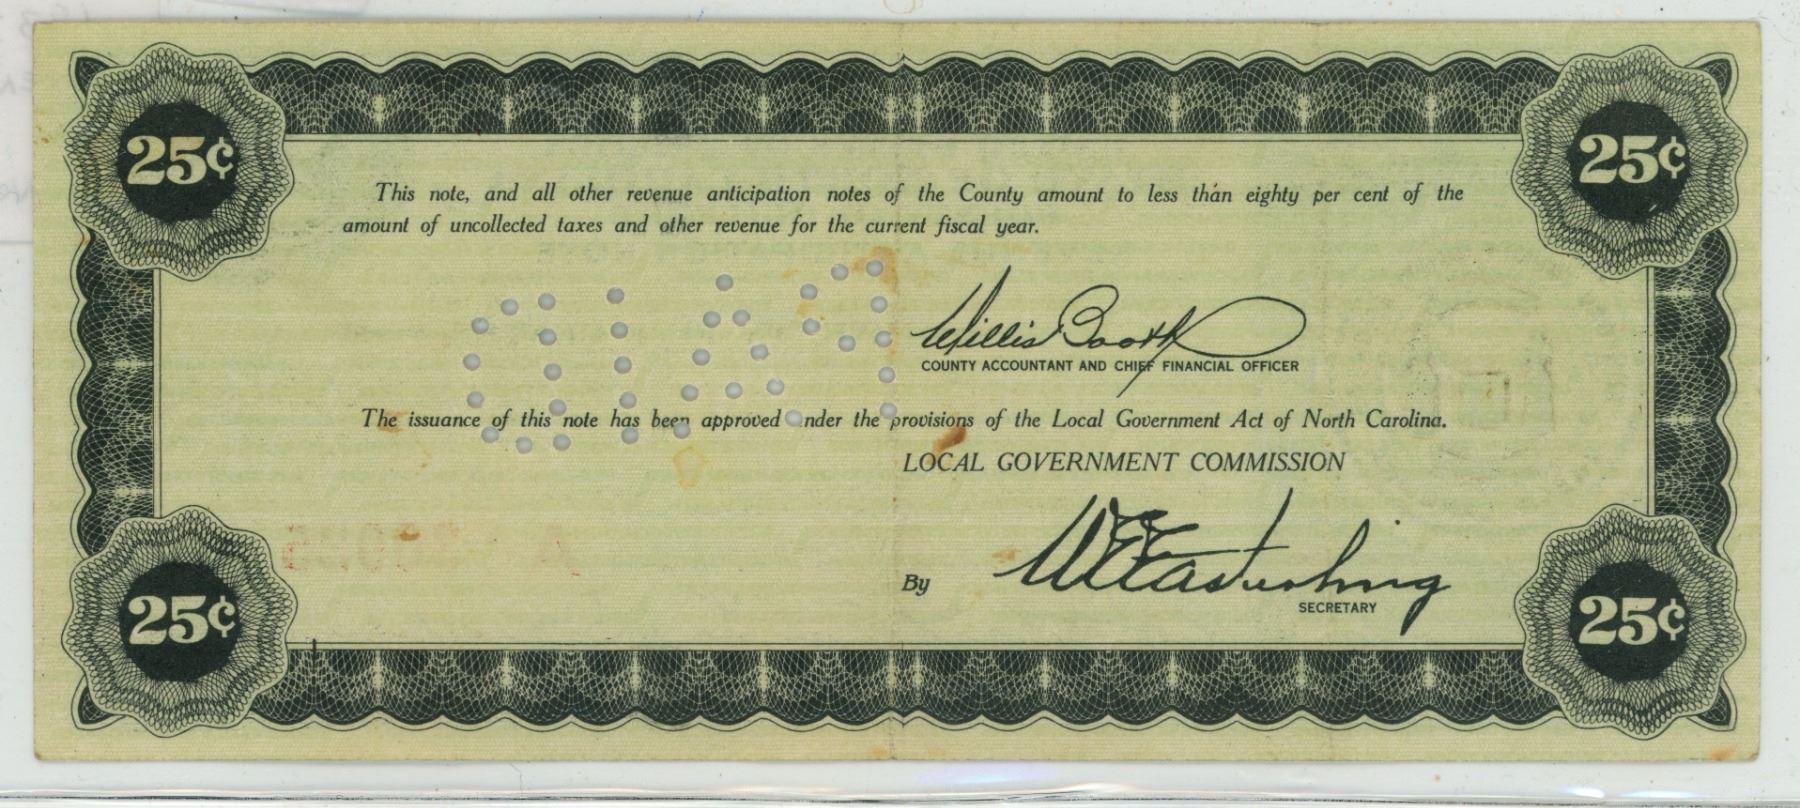 25¢ 25¢
This note, and all other revenue anticipation notes of the County amount to less than eighty per cent of the
amount of uncollected taxes and other revenue for the current fiscal year.
Willis Booth
COUNTY ACCOUNTANT AND CHIEF FINANCIAL OFFICER
PAID
The issuance of this note has been approved nder the provisions of the Local Government Act of North Carolina.
LOCAL GOVERNMENT COMMISSION
By WE Easterling
SECRETARY
25¢ 25¢